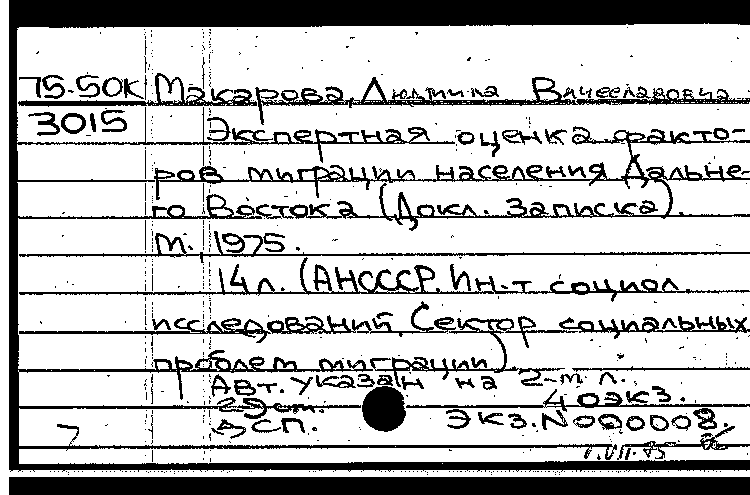 75-50К Макарова, Людмила Вячеславовна
3015 Экспертная оценка факто-
ров миграции населения Дальне-
го Востока (Докл. записка).
М., 1975.
14 л. (АНСССР. Ин-т социол.
исследований. Сектор социальных
проблем миграции).
Авт. указан на 2-м л.
40экз.
ДСП. ЭКЗ.N000008.
1.VII.75